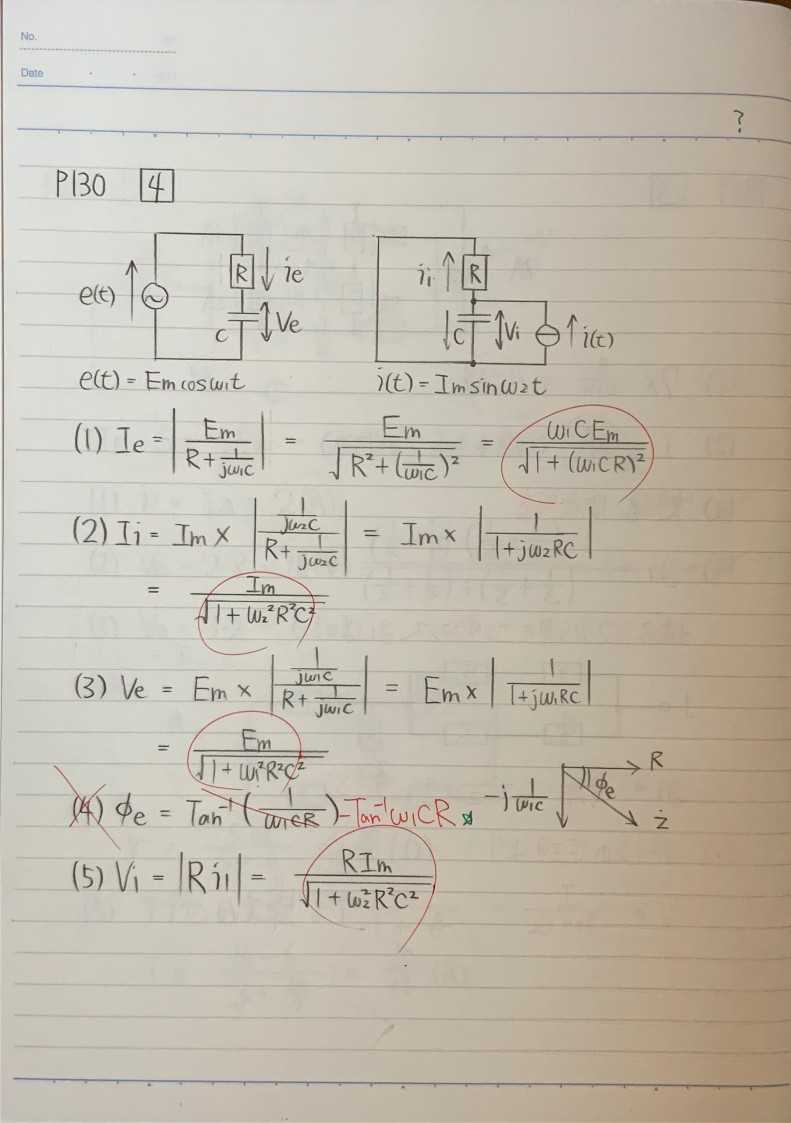 No.
Date
?
P130 [4]
e(t) R ie C Ve
ii R C Vi i(t)
e(t) = Em cos ω1t
i(t) = Im sin ω2t
(1) Ie = |Em / (R + 1/(jω1C))| = Em / √(R² + (1/(ω1C))²) = ω1CEm / √(1 + (ω1CR)²)
(2) Ii = Im × |(1/(jω2C)) / (R + 1/(jω2C))| = Im × |1 / (1 + jω2RC)|
= Im / √(1 + ω2²R²C²)
(3) Ve = Em × |(1/(jω1C)) / (R + 1/(jω1C))| = Em × |1 / (1 + jω1RC)|
= Em / √(1 + ω1²R²C²)
(4) ϕe = Tan⁻¹(1/(ω1CR)) -Tan⁻¹ω1CR
-j 1/(ω1C) R ϕe Ż
(5) Vi = |Ri1| = RIm / √(1 + ω2²R²C²)